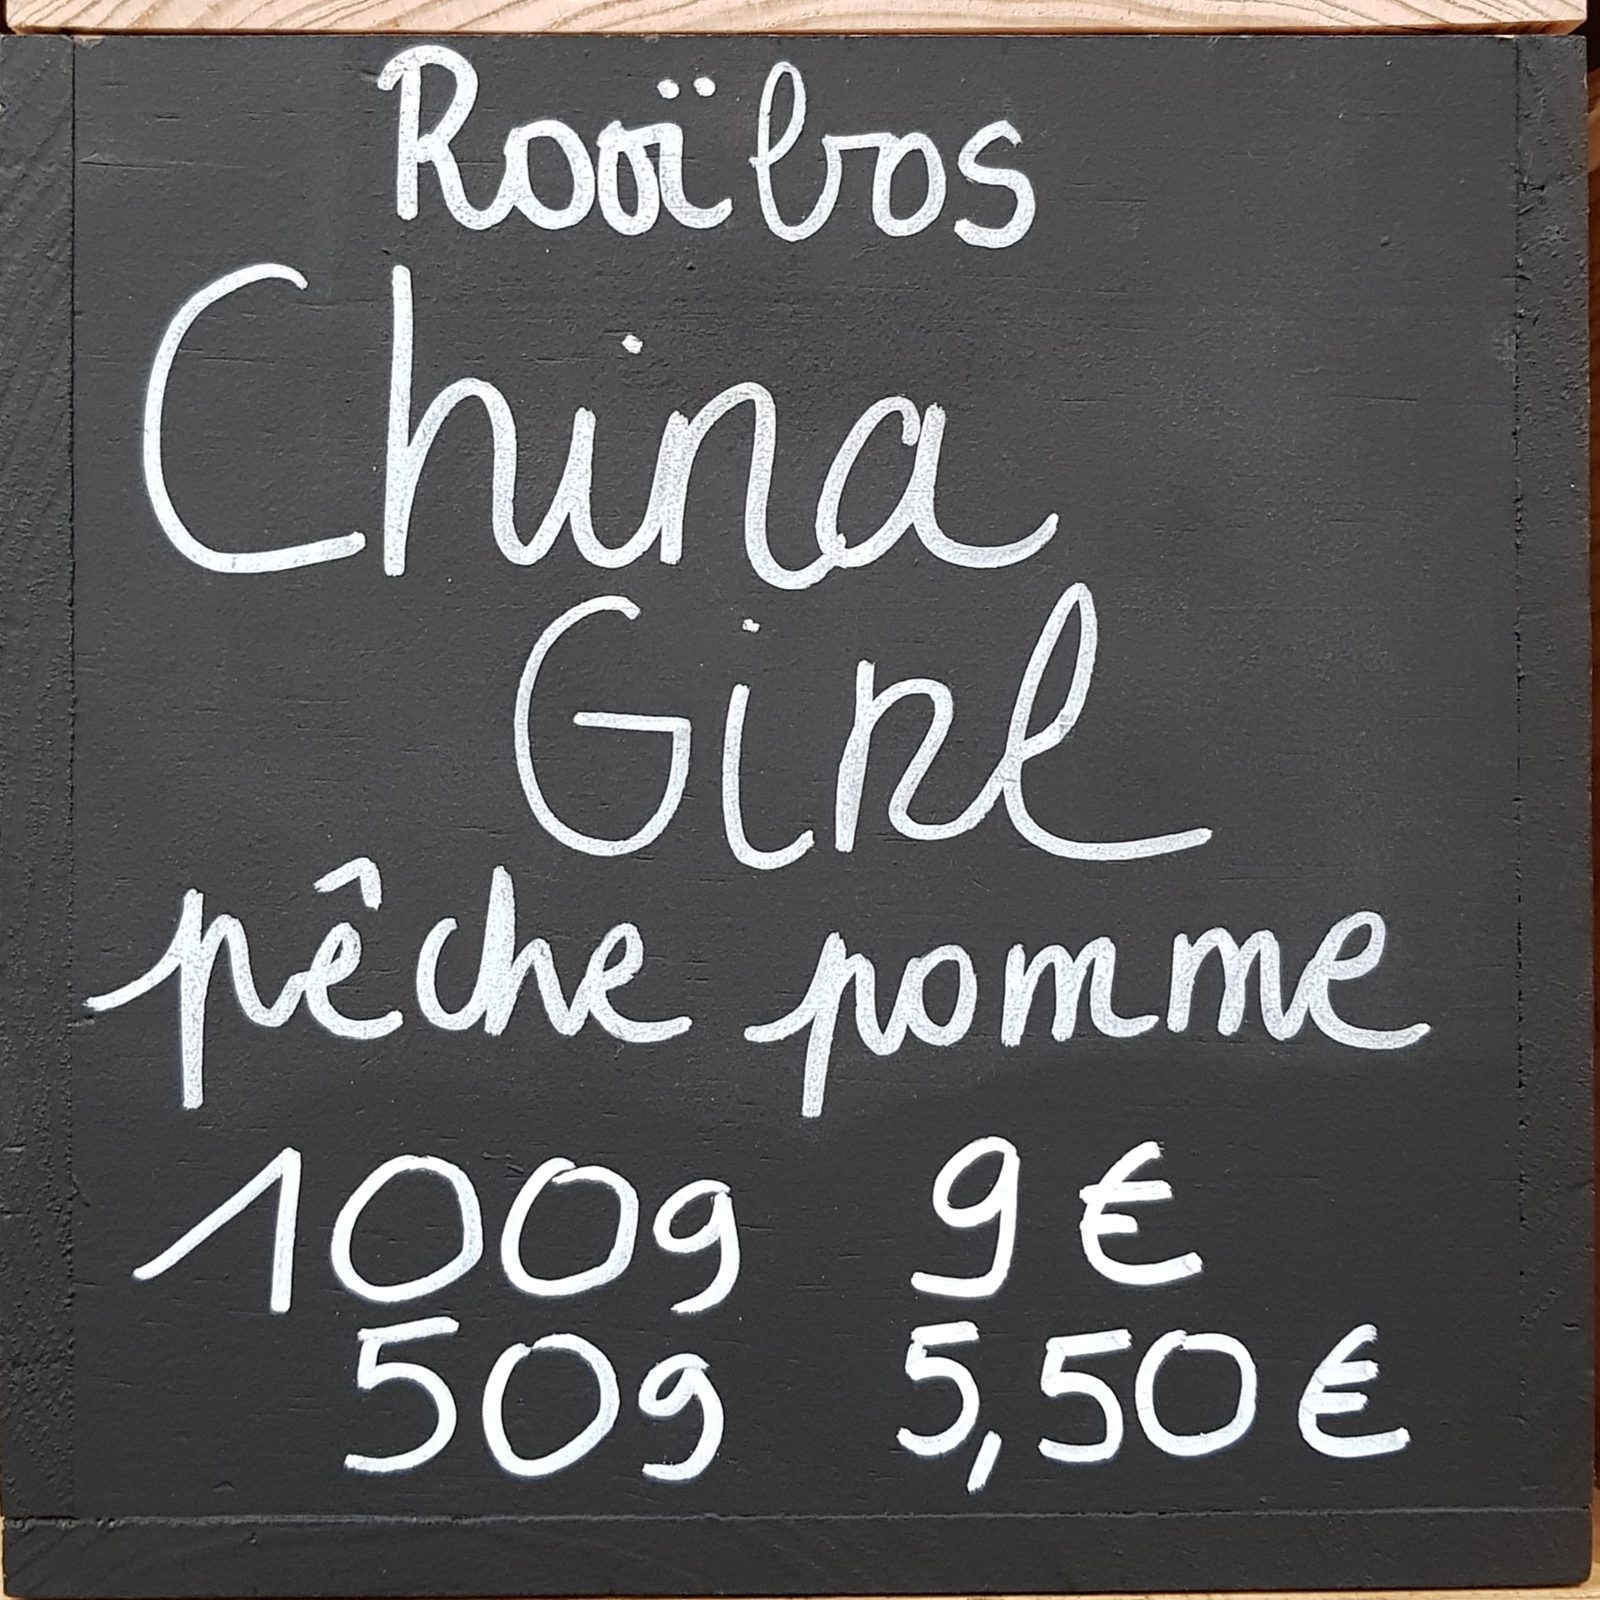 Rooïbos
China
Girl
pêche pomme
100g 9€
50g 5,50€